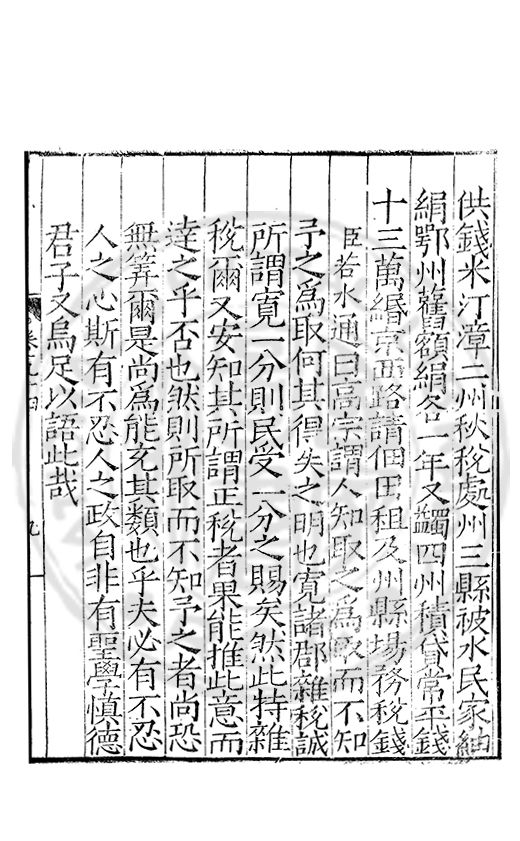 供錢米汀漳二州秋税處州三縣被水民家紬
絹鄂州舊額絹各一年又蠲四州積貸常平錢
十三萬緡京西路請佃田租及州縣場務税錢
臣若水通曰高宗謂人知取之爲取而不知
予之爲取何其得失之明也寛諸郡雜税誠
所謂寛一分則民受一分之賜矣然此特雜
税爾又安知其所謂正税者果能推此意而
達之乎否也然則所取而不知予之者尚恐
無筭爾是尚爲能充其類也乎夫必有不忍
人之心斯有不忍人之政自非有聖學慎德
君子又烏足以語此哉
卷九十四
九